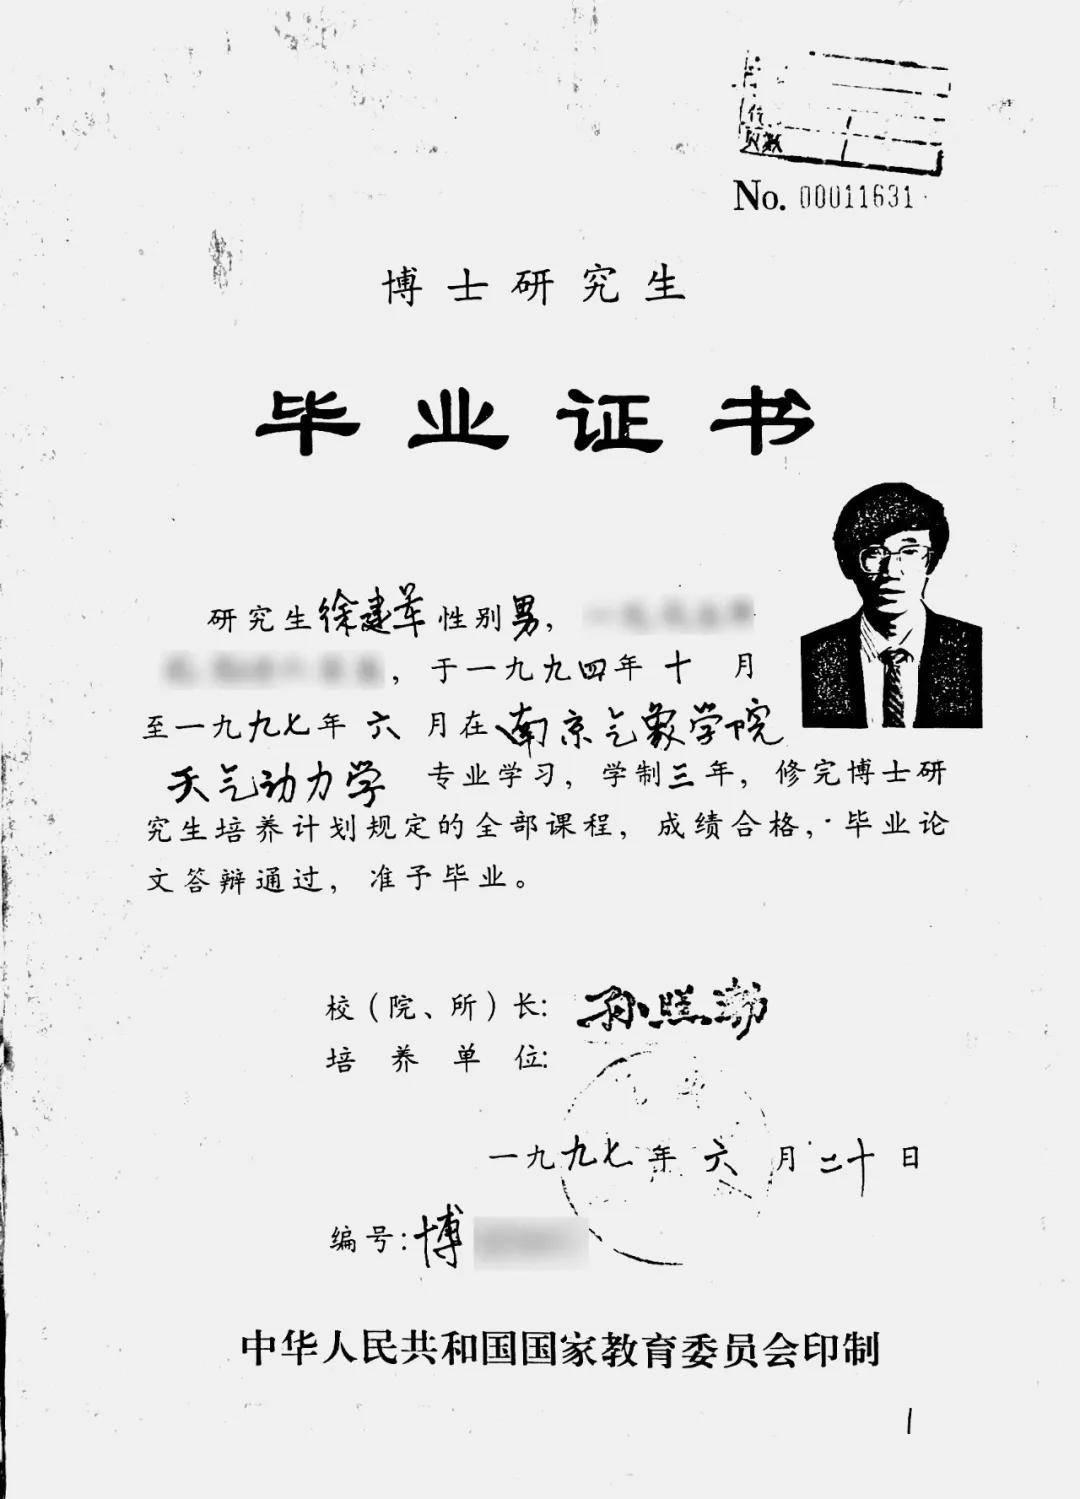 页数
No. 00011631
博士研究生
毕业证书
研究生徐建军性别男，
，于一九九四年十月
至一九九七年六月在南京气象学院
天气动力学 专业学习，学制三年，修完博士研
究生培养计划规定的全部课程，成绩合格，毕业论
文答辩通过，准予毕业。
校（院、所）长：孙照渤
培养单位：
一九九七年六月二十日
编号：博
中华人民共和国国家教育委员会印制
1